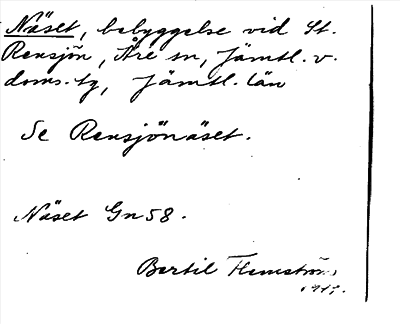 Näset, bebyggelse vid St.
Rensjön, Åre sn, Jämtl. v.
doms.tg, Jämtl. län
Se Rensjönäset.
Näset Gn 58.
Bertil Flemström